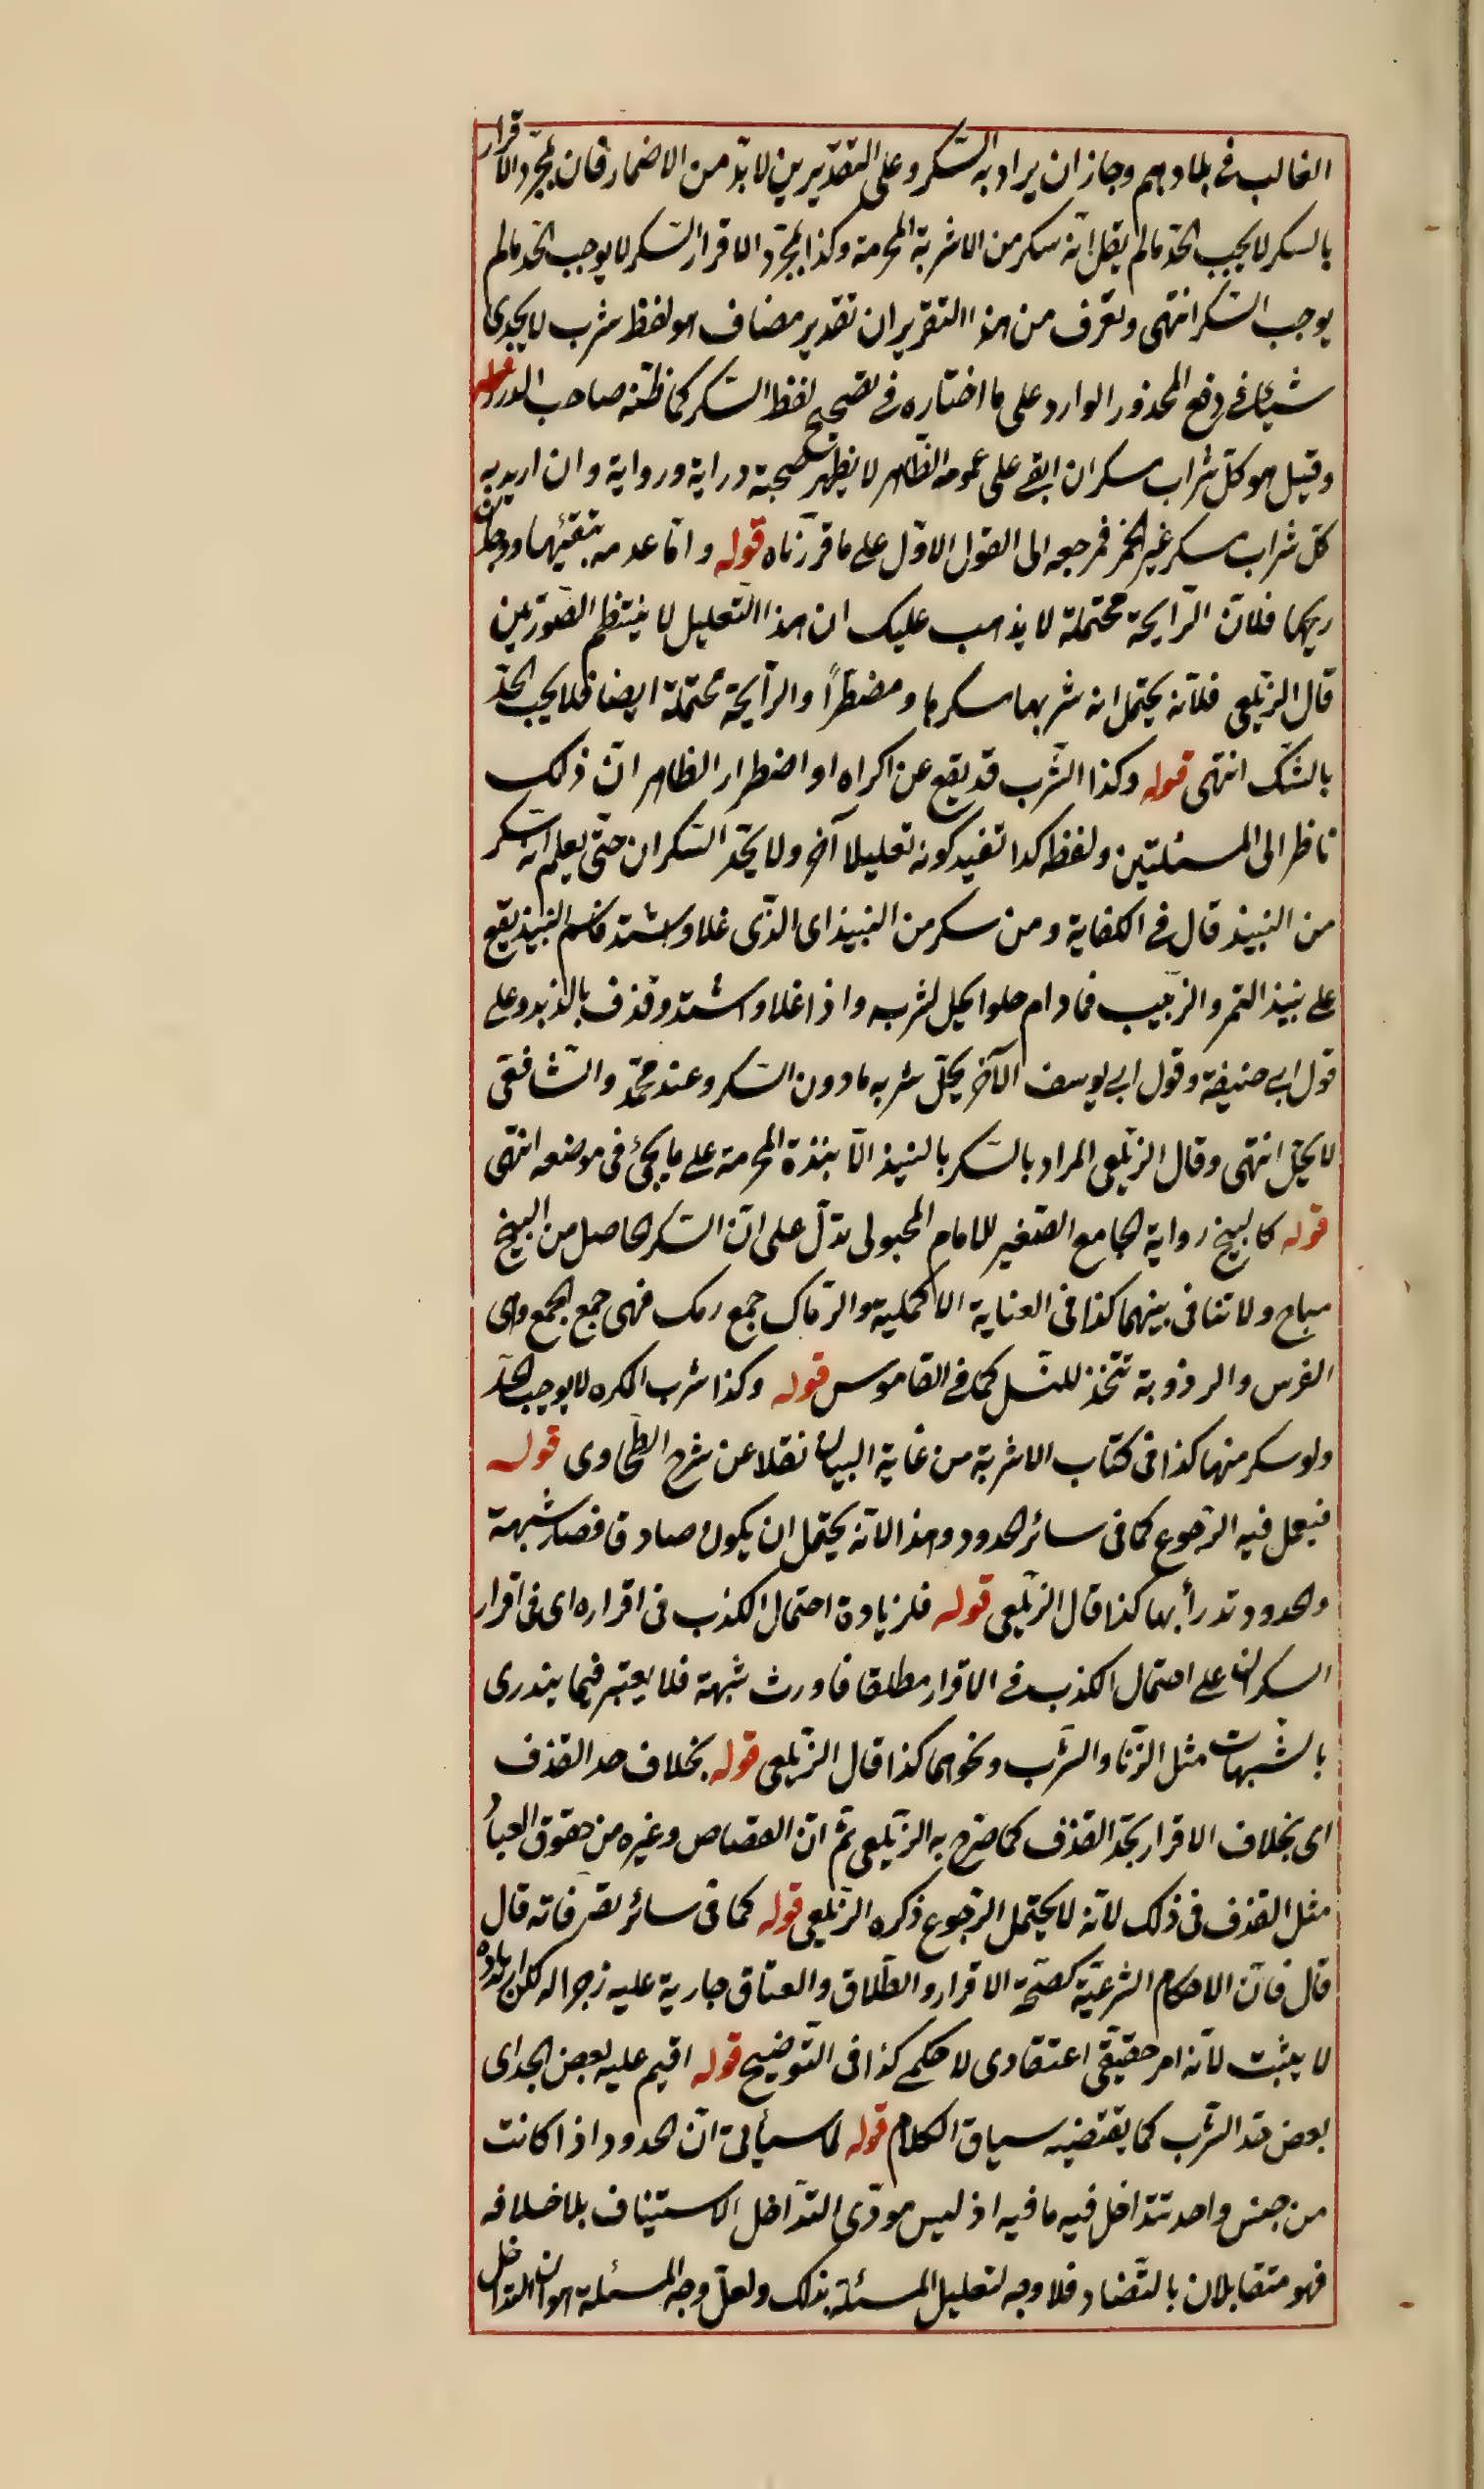 الغالب فى بلادهم وجاز ان يراد به السّكر وعلى التقديرين لا بدّ من الاضمار فان بمجرّد الاقرار
بالسكر لا يجب الحدّ مالم يقل انّه سكر من الاشربة المحرمة وكذا بمجرّد الاقرار السّكر لا يوجب الحدّ مالم
يوجب السّكر انتهى وتعرف من هذا التقرير ان تقدير مضاف هو لفظ شرب لا يجدى
شيئا فى دفع المحذور الوارد على ما اختاره فى تصحيح لفظ السّكر كما ظنّه صاحب الدرر قوله
وقيل هو كلّ شراب مسكر ان ابقى على عمومه الظاهر لا يظهر صحته دراية ورواية وان اريد به
كلّ شراب مسكر غير الخمر فمرجعه الى القول الاوّل على ما قرّرناه قوله وامّا عدمه بتقيّئها ووجدان
ريحها فلانّ الرّايحة محتملة لا يذهب عليك ان هذا التعليل لا ينتظم الصّورتين
قال الزيلعى فلانّه يحتمل انه شربها مكرها ومضطرّا والرّايحة محتملة ايضا فلا يجب الحدّ
بالشّك انتهى قوله وكذا الشّرب قد يقع عن اكراه او اضطرار الظاهر انّ ذلك
ناظر الى المسئلتين ولفظه كذا تفيد كونه تعليلا آخر ولا يحدّ السّكران حتّى يعلم انّه سكر
من النبيذ قال فى الكفاية ومن سكر من النبيذ اى الّذى غلا واشتد فاسم النبيذ يقع
على نبيذ التمر والزبيب فمادام حلوا يحل لشربه واذا غلا واشتدّ وقذف بالزبد وعلى
قول ابى حنيفة وقول ابى يوسف الآخر يحلّ شربه مادون السّكر وعند محمّد والشّافعّى
لا يحلّ انتهى وقال الزيلعى المراد بالسّكر بالنبيذ الانبذة المحرمة على ما يجئ فى موضعه انتهى
قوله كالبنج رواية الجامع الصّغير للامام المحبولى تدلّ على انّ السّكر الحاصل من البنج
مباح ولا تنافى بينهما كذا فى العناية الاكملية والرّماك جمع رمك فهى جمع الجمع وهى
الفرس والبرذونة تتخذ للنّسل كما فى القاموس قوله وكذا شرب المكره لا يوجب الحدّ
ولو سكر منها كذا فى كتاب الاشربة من غاية البيان نقلا عن شرح الطّحاوى قوله
فيعمل فيه الرّجوع كما فى سائر الحدود وهذا لانّه يحتمل ان يكون صادقا فصار شبهة
والحدود تدرأ بها كذا قال الزيلعى قوله فلزيادة احتمال الكذب فى اقراره اى فى اقرار
السكران على احتمال الكذب فى الاقرار مطلقا فاورث شبهة فلا يعتبر فيما يندرى
بالشّبهات مثل الزّنا والشّرب ونحوهما كذا قال الزّيلعى قوله بخلاف حد القذف
اى بخلاف الاقرار بحدّ القذف كما صرّح به الزيلعى ثمّ انّ القصاص وغيره من حقوق العباد
مثل القذف فى ذلك لانّه لا يحتمل الرّجوع ذكره الزّيلعى قوله كما فى سائر تصرفاته قال
قال فانّ الاحكام الشّرعيّة كصحّة الاقرار والطّلاق والعتاق جارية عليه زجرا له لكن ارتداده
لا يثبت لانّه امر حقيقّى اعتقادى لا حكمى كذا فى التّوضيح قوله اقيم عليه بعض الحد اى
بعض حدّ الشّرب كما يقتضيه سياق الكلام قوله لما سيأتى انّ الحدود اذا كانت
من جنس واحد تتداخل فيه ما فيه اذ ليس مودّى التّداخل الاستيناف بل خلافه
فهو متقابلان بالتّضاد فلا وجه لتعليل المسئلة بذلك ولعلّ وجه المسئلة هو ان التداخل